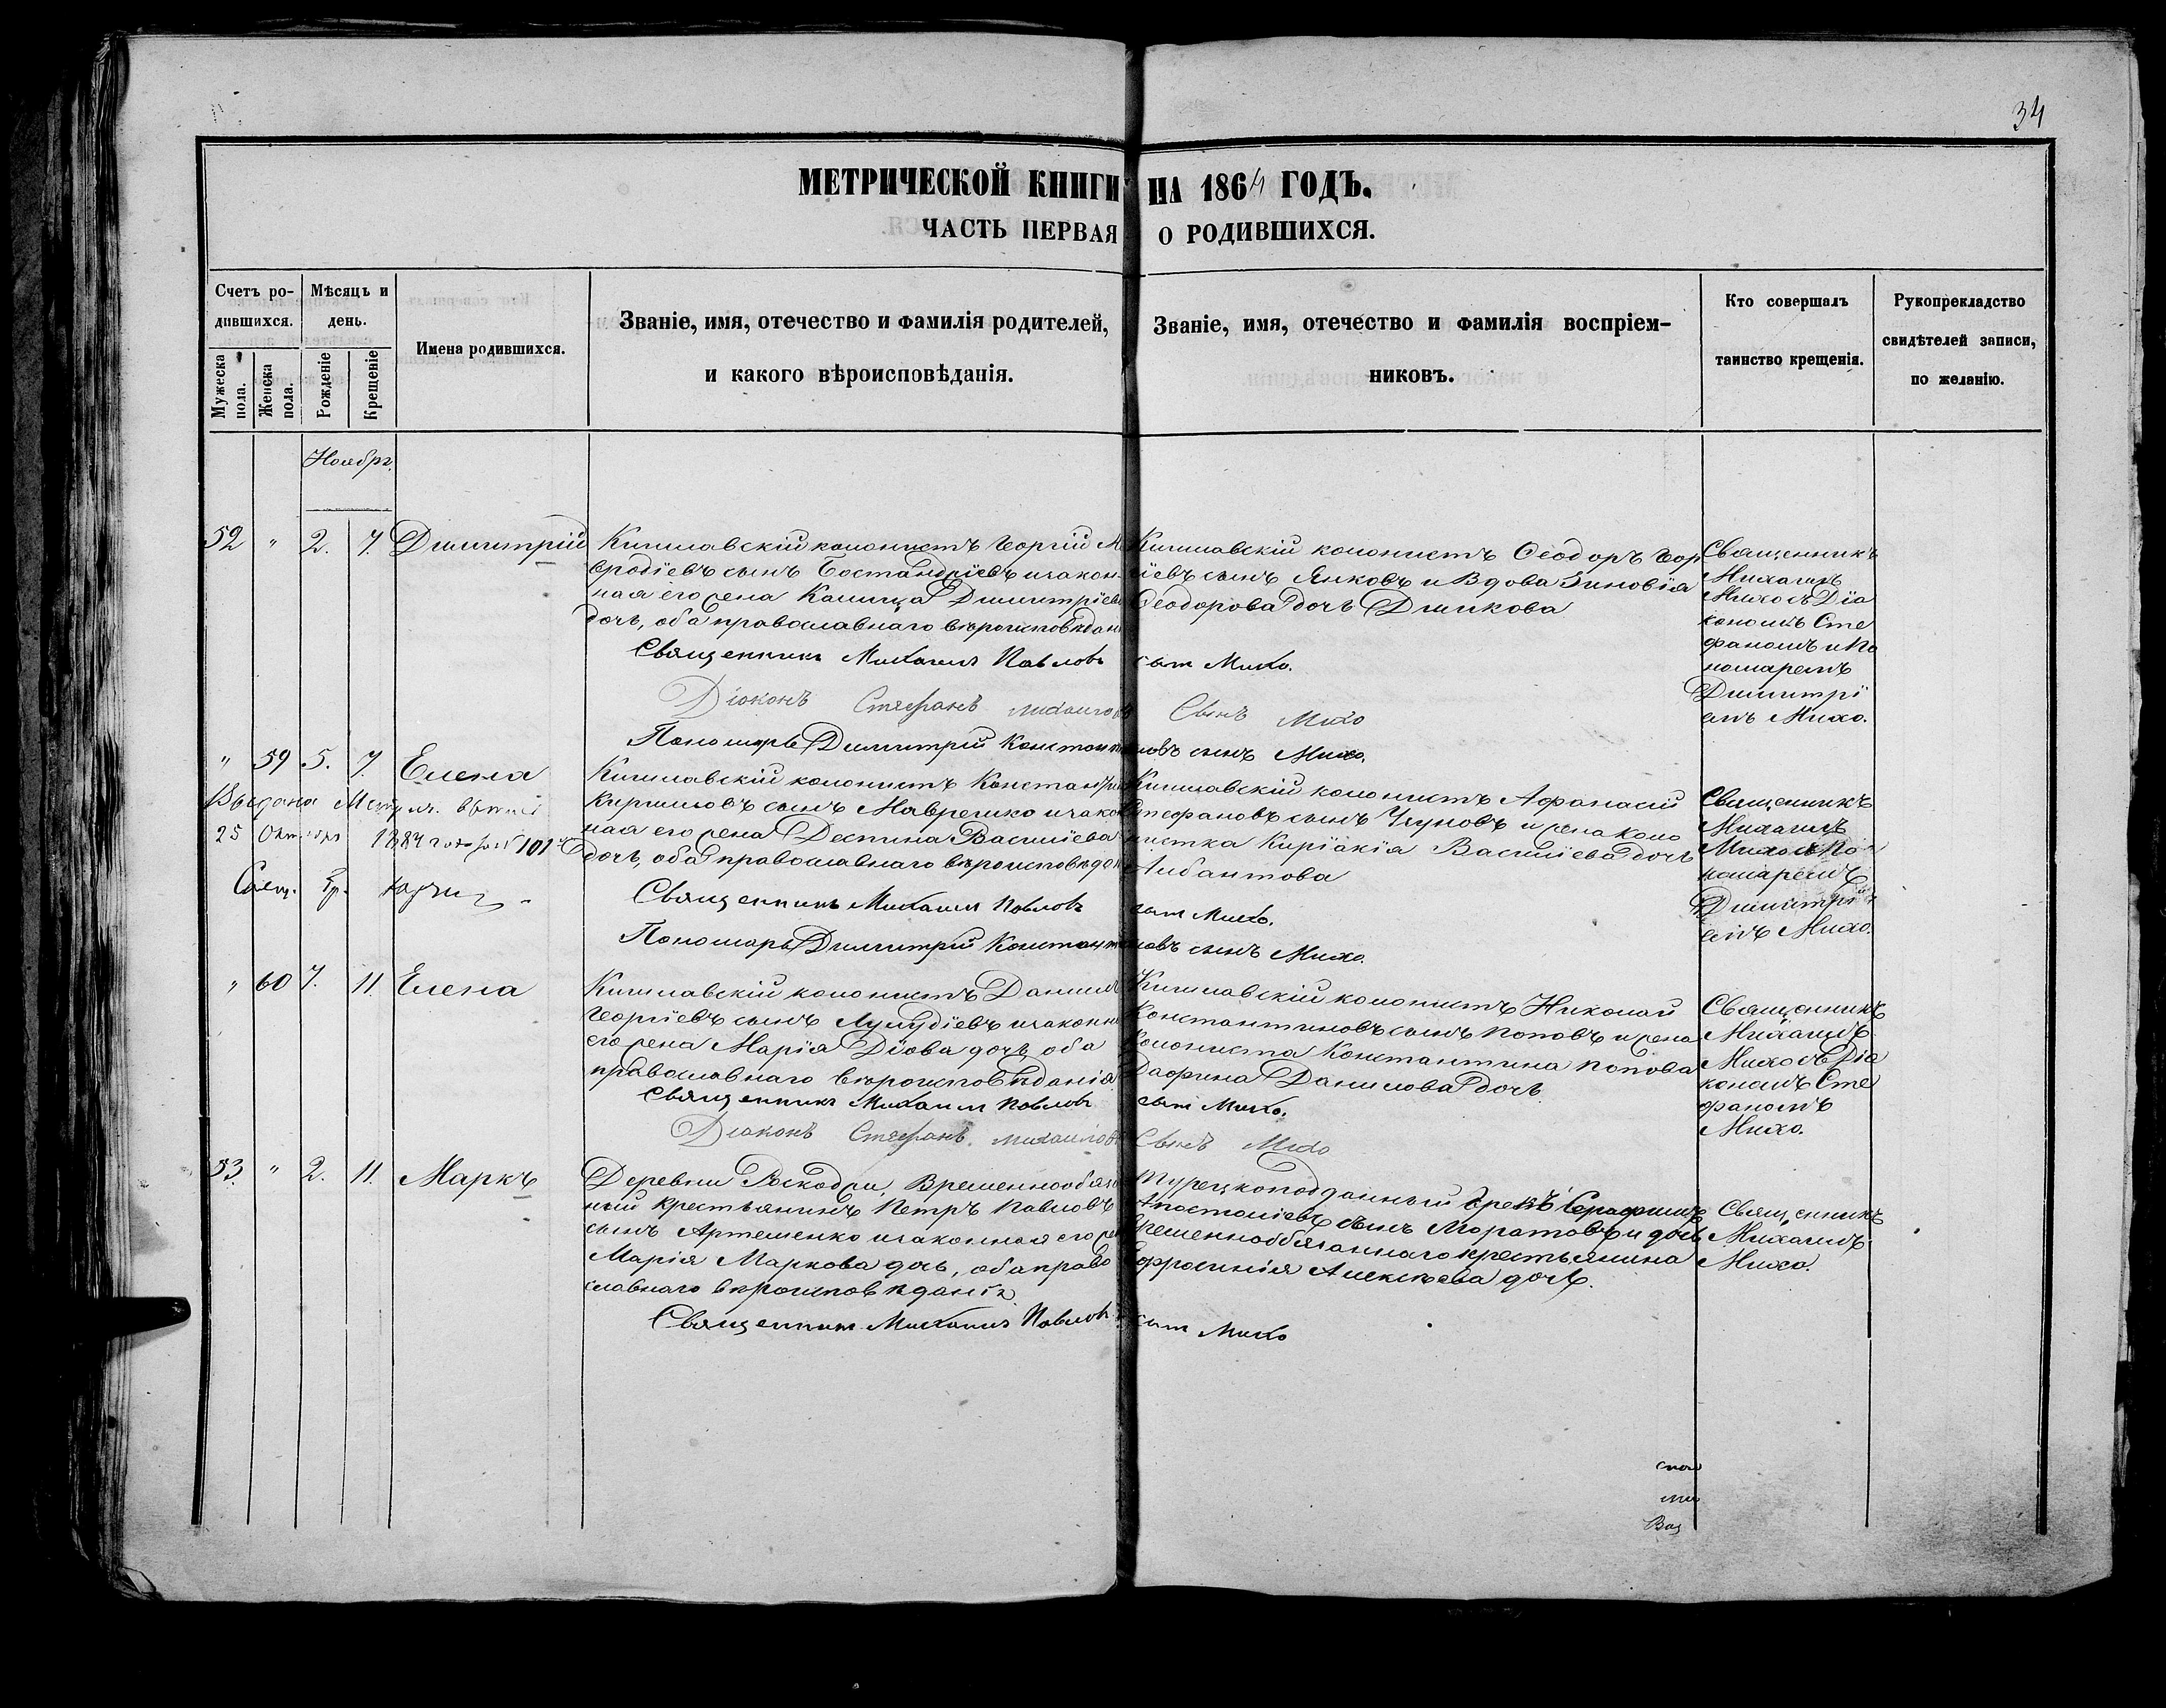 34
МЕТРИЧЕСКОЙ КНИГИ НА 1864 ГОДЪ.
ЧАСТЬ ПЕРВАЯ О РОДИВШИХСЯ.
Счетъ ро-
дившихся.
Мужеска
пола.
Женска
пола.
Мѣсяць и
день.
Рожденіе
Крещеніе
Имена родившихся.
Званіе, имя, отечество и фамилія родителей,
и какого вѣроисповѣданія.
Званіе, имя, отечество и фамилія воспріем-
никовъ.
Кто совершалъ
таинство крещенія.
Рукопрекладство
свидѣтелей записи,
по желанію.
Ноября.
52 " 2. 7. Димитрій
Кишлавскій колонистъ Георгій
сынъ и закон-
ная его жена Димитріева
дочь, оба православнаго вѣроисповѣдан
Священникъ Михаилъ Павловъ сынъ Михо.
Діоконъ Стефанъ Михаиловъ Сынъ Михо
Пономарь Димитрій Константиновъ сынъ Михо.
Кишлавскій колонистъ Ѳеодоръ Геор
іевъ сынъ Янковъ и Вдова Зиновія
Ѳеодорова дочь Димкова
Священникъ
Михаилъ
Михо съ Діа
кономъ Сте
фаномъ и По
номаремъ
Димитрі
емъ Михо.
" 59 5. 7. Елена
Выдана
25 Октября 1884 года 101
Свящ.
Кишлавскій колонистъ
Кирилловъ сынъ и закон
ная его жена Деспина Василіева
дочь, оба православнаго вѣроисповѣдан
Священникъ Михаилъ Павловъ сынъ Михо.
Пономарь Димитрій Константиновъ сынъ Михо.
Кишлавскій колонистъ Афанасій
Стефановъ сынъ и жена коло
нистка Киріакія Василіева дочь
Священникъ
Михаилъ
Михо съ По
номаремъ
Димитрі
емъ Михо.
" 60 7. 11. Елена
Кишлавскій колонистъ Даніилъ
Георгіевъ сынъ и законн
его жена Марія дочь, оба
православнаго вѣроисповѣданія
Священникъ Михаилъ Павловъ сынъ Михо.
Діаконъ Стефанъ Михаиловъ Сынъ Михо
Кишлавскій колонистъ Николай
Константиновъ сынъ Поповъ и жена
колониста Константина Попова
Дафина Данилова дочь
Священникъ
Михаилъ
Михо съ Діа
кономъ Сте
фаномъ
Михо.
53. " 2. 11. Маркъ
Деревни Временнообяза
ный крестьянинъ Петръ Павловъ
сынъ Артеменко и законная его жен
Марія Маркова дочь, оба право
славнаго вѣроисповѣданія
Священникъ Михаилъ Павловъ сынъ Михо
Турецкоподданный Грекъ Серафимъ
Апостоліевъ сынъ Моратовъ и дочь
Временнообязаннаго крестьянина
Ефросинія Алексѣева дочь.
Священникъ
Михаилъ
Михо.